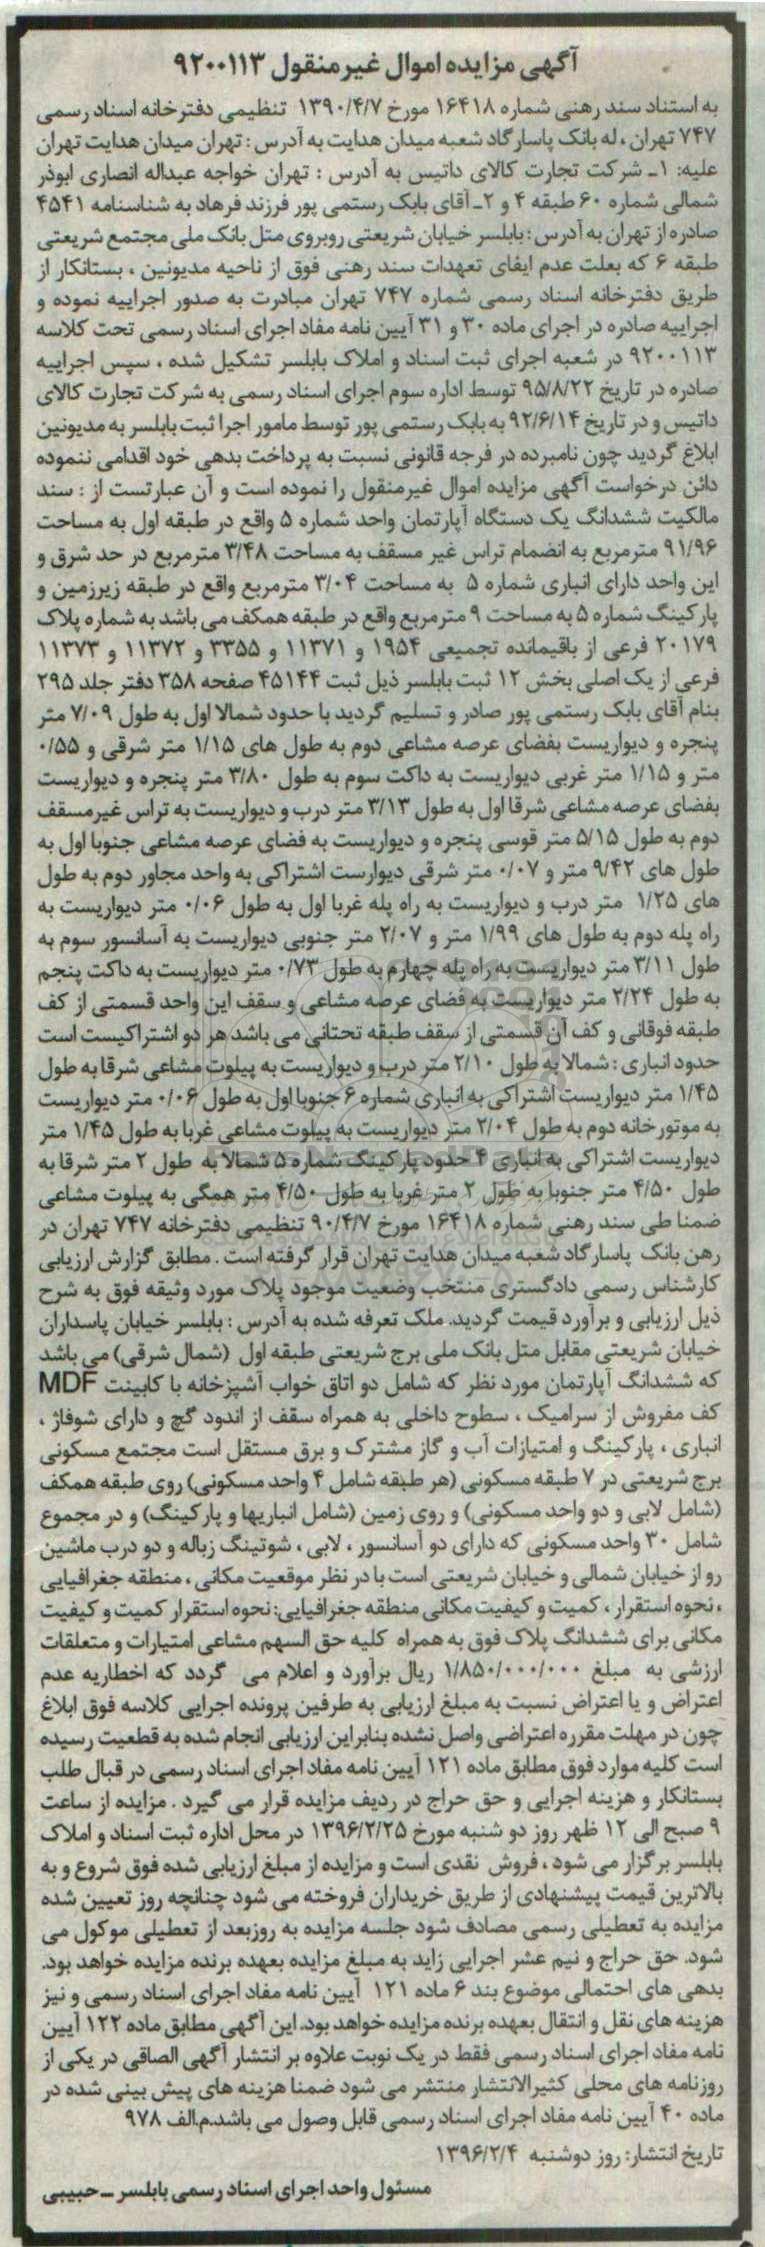 آگهی مزایده اموال غیرمنقول ۹۲۰۰۱۱۳
به استناد سند رهنی شماره ۱۶۴۱۸ مورخ ۱۳۹۰/۴/۷ تنظیمی دفترخانه اسناد رسمی
۷۴۷ تهران ، له بانک پاسارگاد شعبه میدان هدایت به آدرس : تهران میدان هدایت تهران
علیه: ۱ـ شرکت تجارت کالای داتیس به آدرس : تهران خواجه عبداله انصاری ابوذر
شمالی شماره ۶۰ طبقه ۴ و ۲ـ آقای بابک رستمی پور فرزند فرهاد به شناسنامه ۴۵۴۱
صادره از تهران به آدرس : بابلسر خیابان شریعتی روبروی متل بانک ملی مجتمع شریعتی
طبقه ۶ که بعلت عدم ایفای تعهدات سند رهنی فوق از ناحیه مدیونین ، بستانکار از
طریق دفترخانه اسناد رسمی شماره ۷۴۷ تهران مبادرت به صدور اجراییه نموده و
اجراییه صادره در اجرای ماده ۳۰ و ۳۱ آیین نامه مفاد اجرای اسناد رسمی تحت کلاسه
۹۲۰۰۱۱۳ در شعبه اجرای ثبت اسناد و املاک بابلسر تشکیل شده ، سپس اجراییه
صادره در تاریخ ۹۵/۸/۲۲ توسط اداره سوم اجرای اسناد رسمی به شرکت تجارت کالای
داتیس و در تاریخ ۹۲/۶/۱۴ به بابک رستمی پور توسط مامور اجرا ثبت بابلسر به مدیونین
ابلاغ گردید چون نامبرده در فرجه قانونی نسبت به پرداخت بدهی خود اقدامی ننموده
دائن درخواست آگهی مزایده اموال غیرمنقول را نموده است و آن عبارتست از : سند
مالکیت ششدانگ یک دستگاه آپارتمان واحد شماره ۵ واقع در طبقه اول به مساحت
۹۱/۹۶ مترمربع به انضمام تراس غیر مسقف به مساحت ۳/۴۸ مترمربع در حد شرق و
این واحد دارای انباری شماره ۵ به مساحت ۳/۰۴ مترمربع واقع در طبقه زیرزمین و
پارکینگ شماره ۵ به مساحت ۹ مترمربع واقع در طبقه همکف می باشد به شماره پلاک
۲۰۱۷۹ فرعی از باقیمانده تجمیعی ۱۹۵۴ و ۱۱۳۷۱ و ۳۳۵۵ و ۱۱۳۷۲ و ۱۱۳۷۳
فرعی از یک اصلی بخش ۱۲ ثبت بابلسر ذیل ثبت ۴۵۱۴۴ صفحه ۳۵۸ دفتر جلد ۲۹۵
بنام آقای بابک رستمی پور صادر و تسلیم گردید با حدود شمالا اول به طول ۷/۰۹ متر
پنجره و دیواریست بفضای عرصه مشاعی دوم به طول های ۱/۱۵ متر شرقی و ۰/۵۵
متر و ۱/۱۵ متر غربی دیواریست به داکت سوم به طول ۳/۸۰ متر پنجره و دیواریست
بفضای عرصه مشاعی شرقا اول به طول ۳/۱۳ متر درب و دیواریست به تراس غیرمسقف
دوم به طول ۵/۱۵ متر قوسی پنجره و دیواریست به فضای عرصه مشاعی جنوبا اول به
طول های ۹/۴۲ متر و ۰/۰۷ متر شرقی دیوارست اشتراکی به واحد مجاور دوم به طول
های ۱/۲۵ متر درب و دیواریست به راه پله غربا اول به طول ۰/۰۶ متر دیواریست به
راه پله دوم به طول های ۱/۹۹ متر و ۲/۰۷ متر جنوبی دیواریست به آسانسور سوم به
طول ۳/۱۱ متر دیواریست به راه پله چهارم به طول ۰/۷۳ متر دیواریست به داکت پنجم
به طول ۲/۲۴ متر دیواریست به فضای عرصه مشاعی و سقف این واحد قسمتی از کف
طبقه فوقانی و کف آن قسمتی از سقف طبقه تحتانی می باشد هر دو اشتراکیست است
حدود انباری : شمالا به طول ۲/۱۰ متر درب و دیواریست به پیلوت مشاعی شرقا به طول
۱/۴۵ متر دیواریست اشتراکی به انباری شماره ۶ جنوبا اول به طول ۰/۰۶ متر دیواریست
به موتورخانه دوم به طول ۲/۰۴ متر دیواریست به پیلوت مشاعی غربا به طول ۱/۴۵ متر
دیواریست اشتراکی به انباری ۴ حدود پارکینگ شماره ۵ شمالا به طول ۲ متر شرقا به
طول ۴/۵۰ متر جنوبا به طول ۲ متر غربا به طول ۴/۵۰ متر همگی به پیلوت مشاعی
ضمنا طی سند رهنی شماره ۱۶۴۱۸ مورخ ۹۰/۴/۷ تنظیمی دفترخانه ۷۴۷ تهران در
رهن بانک پاسارگاد شعبه میدان هدایت تهران قرار گرفته است . مطابق گزارش ارزیابی
کارشناس رسمی دادگستری منتخب وضعیت موجود پلاک مورد وثیقه فوق به شرح
ذیل ارزیابی و برآورد قیمت گردید. ملک تعرفه شده به آدرس : بابلسر خیابان پاسداران
خیابان شریعتی مقابل متل بانک ملی برج شریعتی طبقه اول (شمال شرقی) می باشد
که ششدانگ آپارتمان مورد نظر که شامل دو اتاق خواب آشپزخانه با کابینت MDF
کف مفروش از سرامیک ، سطوح داخلی به همراه سقف از اندود گچ و دارای شوفاژ ،
انباری ، پارکینگ و امتیازات آب و گاز مشترک و برق مستقل است مجتمع مسکونی
برج شریعتی در ۷ طبقه مسکونی (هر طبقه شامل ۴ واحد مسکونی) روی طبقه همکف
(شامل لابی و دو واحد مسکونی) و روی زمین (شامل انباریها و پارکینگ) و در مجموع
شامل ۳۰ واحد مسکونی که دارای دو آسانسور ، لابی ، شوتینگ زباله و دو درب ماشین
رو از خیابان شمالی و خیابان شریعتی است با در نظر موقعیت مکانی ، منطقه جغرافیایی
، نحوه استقرار ، کمیت و کیفیت مکانی منطقه جغرافیایی: نحوه استقرار کمیت و کیفیت
مکانی برای ششدانگ پلاک فوق به همراه کلیه حق السهم مشاعی امتیارات و متعلقات
ارزشی به مبلغ ۱/۸۵۰/۰۰۰/۰۰۰ ریال برآورد و اعلام می گردد که اخطاریه عدم
اعتراض و یا اعتراض نسبت به مبلغ ارزیابی به طرفین پرونده اجرایی کلاسه فوق ابلاغ
چون در مهلت مقرره اعتراضی واصل نشده بنابراین ارزیابی انجام شده به قطعیت رسیده
است کلیه موارد فوق مطابق ماده ۱۲۱ آیین نامه مفاد اجرای اسناد رسمی در قبال طلب
بستانکار و هزینه اجرایی و حق حراج در ردیف مزایده قرار می گیرد . مزایده از ساعت
۹ صبح الی ۱۲ ظهر روز دو شنبه مورخ ۱۳۹۶/۲/۲۵ در محل اداره ثبت اسناد و املاک
بابلسر برگزار می شود ، فروش نقدی است و مزایده از مبلغ ارزیابی شده فوق شروع و به
بالاترین قیمت پیشنهادی از طریق خریداران فروخته می شود چنانچه روز تعیین شده
مزایده به تعطیلی رسمی مصادف شود جلسه مزایده به روزبعد از تعطیلی موکول می
شود. حق حراج و نیم عشر اجرایی زاید به مبلغ مزایده بعهده برنده مزایده خواهد بود.
بدهی های احتمالی موضوع بند ۶ ماده ۱۲۱ آیین نامه مفاد اجرای اسناد رسمی و نیز
هزینه های نقل و انتقال بعهده برنده مزایده خواهد بود. این آگهی مطابق ماده ۱۲۲ آیین
نامه مفاد اجرای اسناد رسمی فقط در یک نوبت علاوه بر انتشار آگهی الصاقی در یکی از
روزنامه های محلی کثیرالانتشار منتشر می شود ضمنا هزینه های پیش بینی شده در
ماده ۴۰ آیین نامه مفاد اجرای اسناد رسمی قابل وصول می باشد.م.الف ۹۷۸
تاریخ انتشار: روز دوشنبه ۱۳۹۶/۲/۴
مسئول واحد اجرای اسناد رسمی بابلسر ـ حبیبی